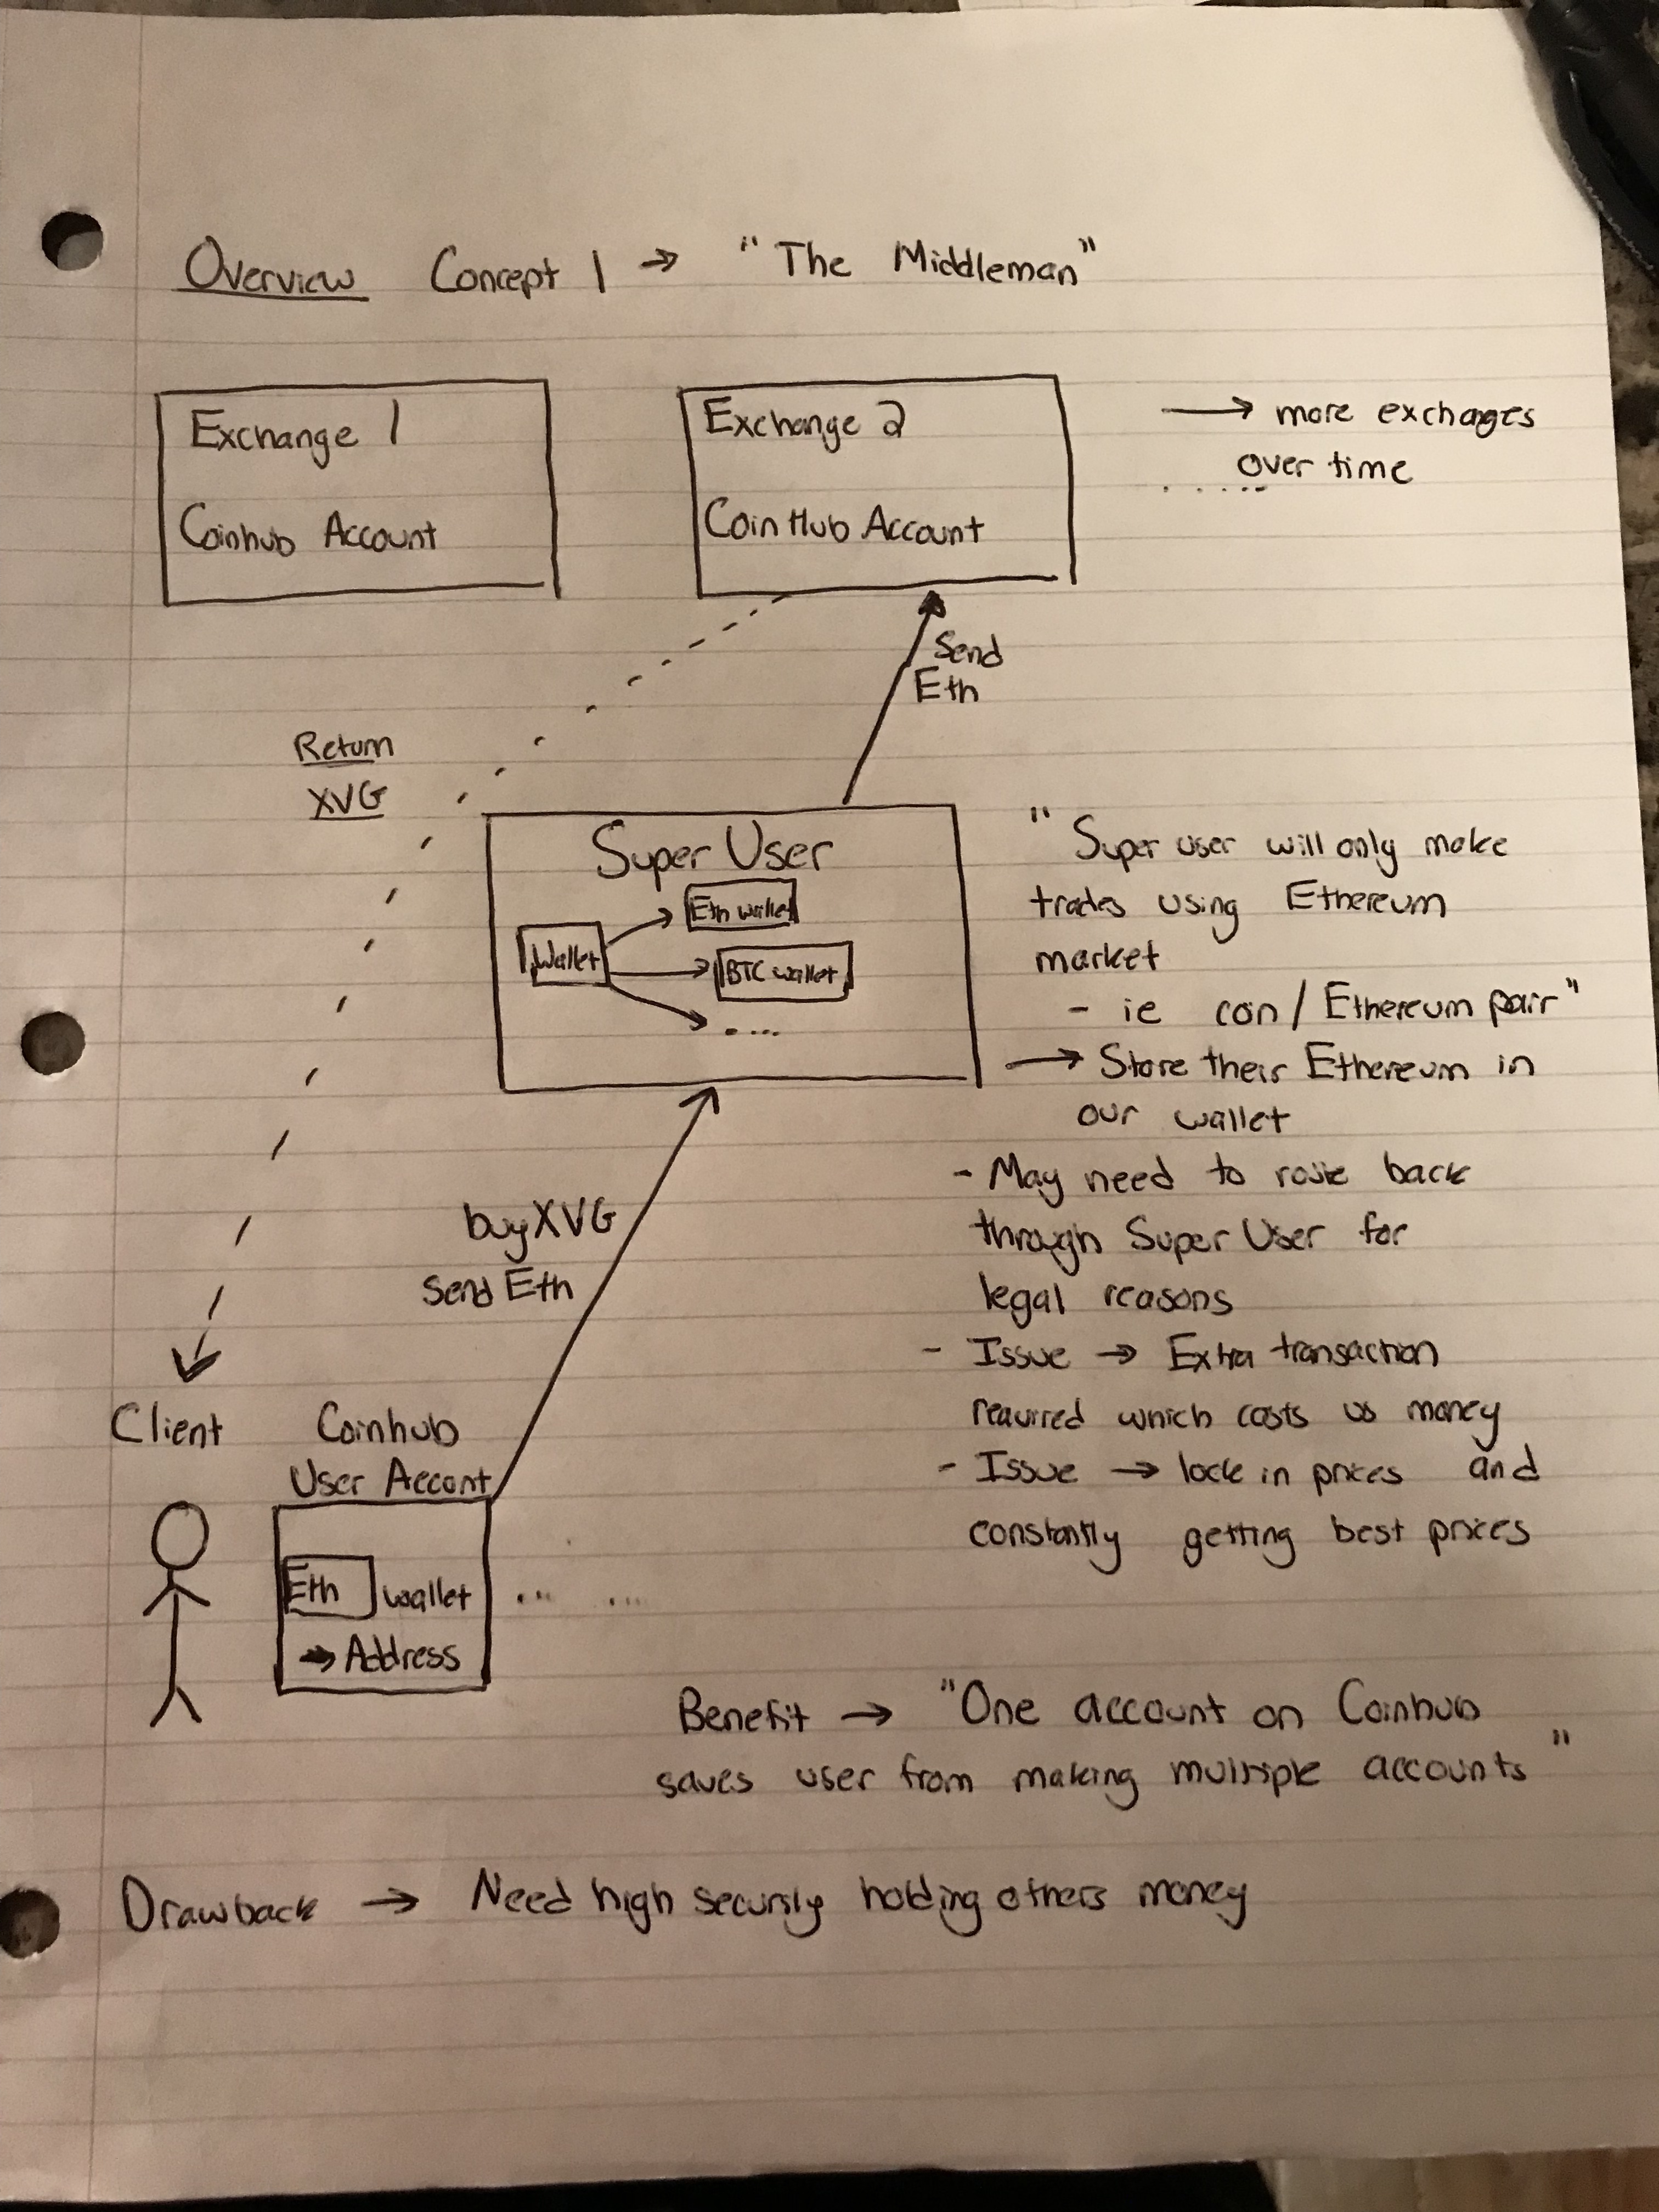 Overview Concept 1 → "The Middleman"
Exchange 1
Coinhub Account
Exchange 2
CoinHub Account
→ more exchages
over time
.....
Send
Eth
Return
XVG
Super User
Wallet
Eth wallet
BTC wallet
....
"Super user will only make
trades using Ethereum
market
- ie coin / Ethereum pair"
→ Store their Ethereum in
our wallet
- May need to route back
through Super User for
legal reasons
- Issue → Extra transaction
required which costs us money
- Issue → lock in prices and
constantly getting best prices
buy XVG
Send Eth
Client
Coinhub
User Accont
Eth wallet
→ Address
... ...
Benefit → "One account on Coinhub
saves user from making multiple accounts"
Drawback → Need high security holding others money